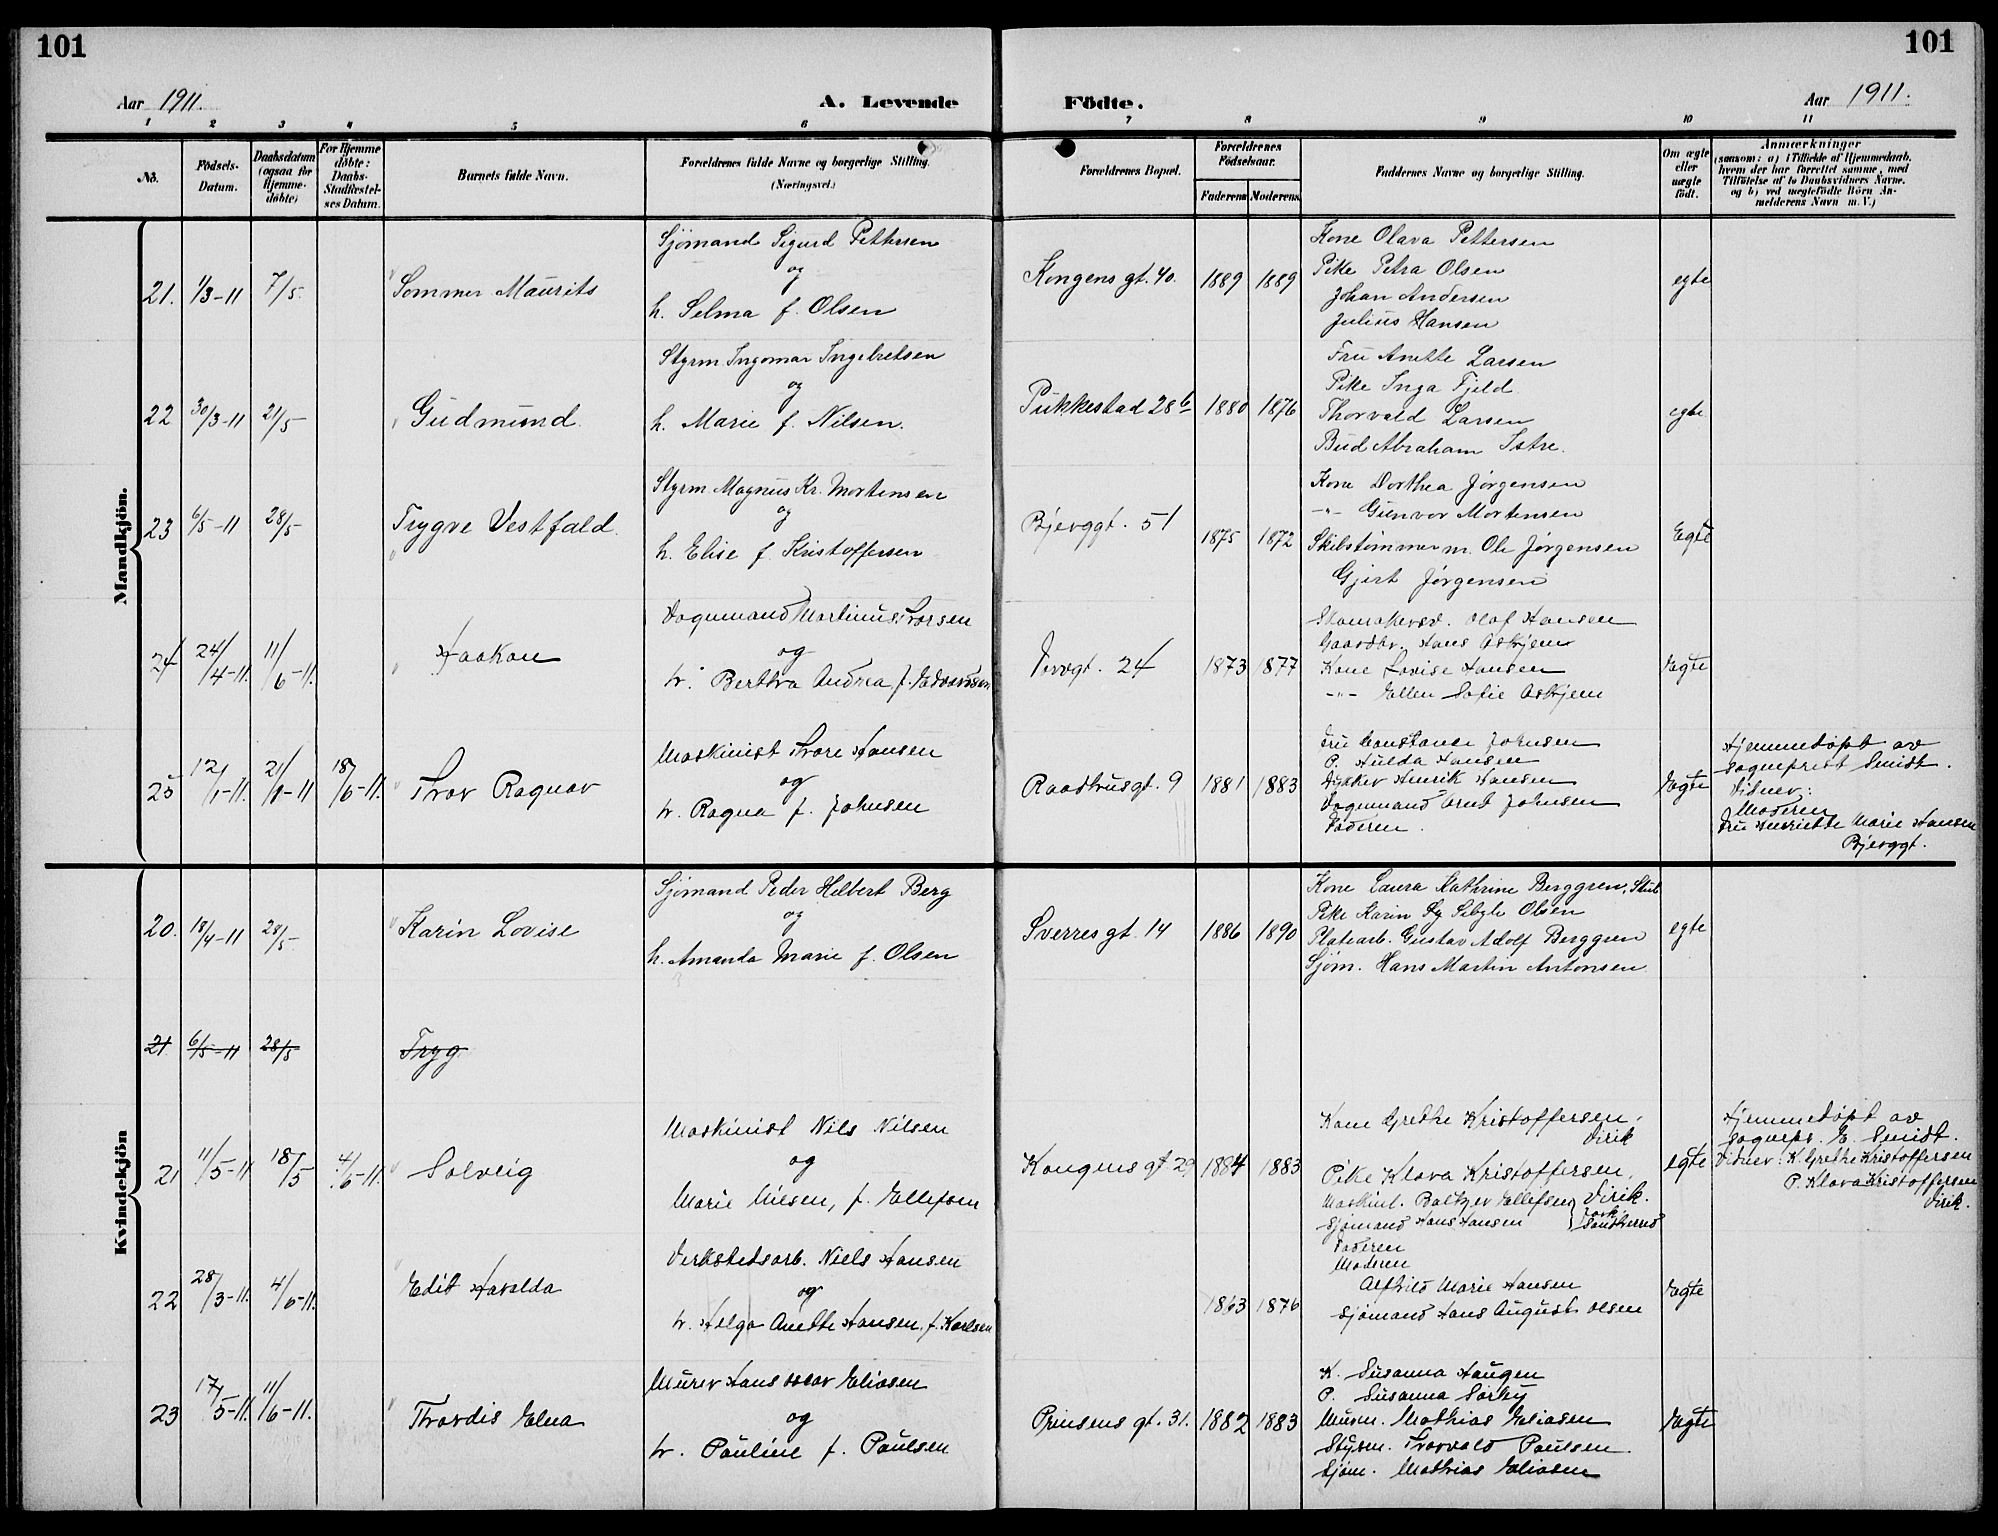 101
101
Aar 1911.
A. Levende
Födte.
Aar 1911.
1 2 3 4 5 6 7 8 9 10 11
No.
Födsels-
Datum.
Daabsdatum
(ogsaa for
Hjemme-
døbte)
For Hjemme
døbte:
Daabs-
Stadfæstel-
ses Datum.
Barnets fulde Navn.
Forældrenes fulde Navne og borgerlige Stilling.
(Næringsvei.)
Forældrenes Bopæl.
Forældrenes
Födselsaar.
Faderens Moderens
Faddernes Navne og borgerlige Stilling.
Om ægte
eller
uægte
født.
Anmærkninger
(saasom: a) i Tilfælde af Hjemmedaab,
hvem der har forrettet samme, med
Tilføielse af to Daabsvidners Navne,
og b) ved uægtefødte Børn An-
melderens Navn m. V.)
Mandkjön.
21. 1/3-11 7/5. Sommer Maurits
Sjømand Sigurd Pettersen
og
h. Selma f. Olsen
Kongens gt. 40. 1889 1889
Kone Olava Pettersen
Pike Petra Olsen
Johan Andersen
Julius Hansen
egte
22 30/3-11 21/5 Gudmund.
Styrm Ingomar Ingebretsen
og
h. Marie f. Nilsen.
Pukkestad 28b 1880 1876
Fru Anette Larsen
Pike Inga Fjeld
Thorvald Larsen
Bud Abraham Istre.
egte
23 6/5-11 28/5 Trygve Vestfald.
Styrm Magnus Kr. Mortensen
og
h. Elise f. Kristoffersen
Bjerggt. 51 1875 1872
Kone Dorthea Jørgensen
-"- Gunvor Mortensen
Skibstømmerm. Ole Jørgensen
Gjert Jørgensen
Egte
24 24/4-11. 11/6-11. Haakon
Vognmand Martinus Thorsen
og
h. Berthra Andrea f. Edvardsen
Torvgt. 24 1873 1877
Skomakersv. Olaf Hansen
Gaardbr. Hans Askjem
Kone Lovise Hansen
-"- Ellen Sofie Askjem
Egte
25 12/1-11. 21/1-11 18/6-11. Thor Ragnar
Maskinist Thore Hansen
og
h. Ragna f. Johnsen
Raadhusgt. 9 1881 1883
Fru Constance Johnsen
P. Hulda Hansen
Dykker Henrik Hansen
Vognmand Arnt Johnsen
Faderen.
Egte
Hjemmedøpt av
Sogneprest Smidt.
Vidner:
Moderen
Fru Henriette Marie Hansen
Bjerggt.
Kvindekjön
20. 18/4-11 28/5- Karin Lovise
Sjømand Peder Helbert Berg
og
h. Amanda Marie f. Olsen
Sverres gt. 14 1886 1890
Kone Laura Kathrine Berggren, Stub
Pike Karin Sibyle Olsen
Platearb. Gustav Adolf Berggren
Sjøm. Hans Martin Antonsen
egte
21 6/5-11 28/5 Tryg
21 11/5-11 18/5 4/6-11. Solveig
Maskinist Nils Nilsen
og
Marie Nilsen, f. Ellefsen
Kongens gt 29 1884 1883
Kone Grethe Kristoffersen,
Virik
Pike Klara Kristoffersen,
Virik.
Maskint. Baltzer Ellefsen
Sjømand Hans Hansen
Sandherred
Faderen
Moderen
egte
Hjemmedøpt av
Sognepr. E. Smidt.
Vidner: K. Grethe Kristoffersen
P. Klara Kristoffersen
Virik.
22 28/3-11. 4/6-11. Edit Haralda
Verkstedsarb. Niels Hansen
og
h. Helga Anette Hansen, f. Karlsen
1863 1876
Alfhild Marie Hansen
Sjømand Hans August Olsen
Egte
23 17/5-11. 11/6-11. Thordis Elna
Murer Hans Oskar Eliasen
og
h. Pauline f. Paulsen
Prinsens gt. 31. 1882 1883
K. Susanna Haugen
P. Susanna Sørby
Murm. Mathias Eliasen
Styrm. Thorvald Paulsen
Sjøm. Mathias Eliasen
Egte